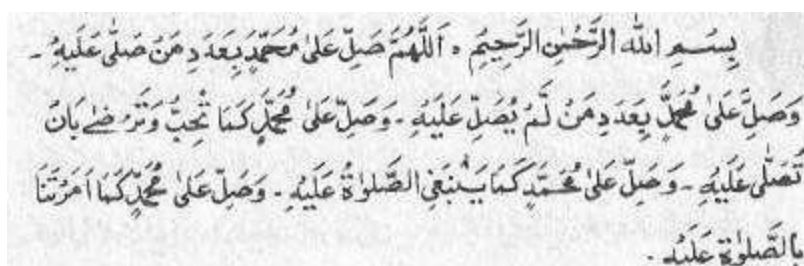 بِسْمِ اللهِ الرَّحْمٰنِ الرَّحِيْمِ ہ اَللّٰهُمَّ صَلِّ عَلٰى مُحَمَّدٍ بِعَدَدِ مَنْ صَلّٰى عَلَيْهِ ۔
وَصَلِّ عَلٰى مُحَمَّدٍ بِعَدَدِ مَنْ لَّمْ يُصَلِّ عَلَيْهِ ۔ وَصَلِّ عَلٰى مُحَمَّدٍ كَمَا تُحِبُّ وَتَرْضٰے بَانْ
تُصَلّٰى عَلَيْهِ ۔ وَصَلِّ عَلٰى مُحَمَّدٍ كَمَا يَنْبَغِى الصَّلٰوةُ عَلَيْهِ ۔ وَصَلِّ عَلٰى مُحَمَّدٍ كَمَا اَمَرْتَنَا
بِالصَّلٰوةِ عَلَيْهِ ۔